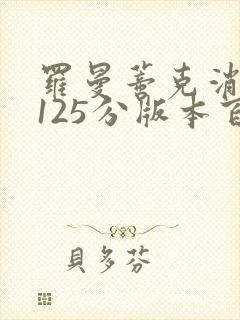 羅曼蒂克消
125分版本百
貝多芬